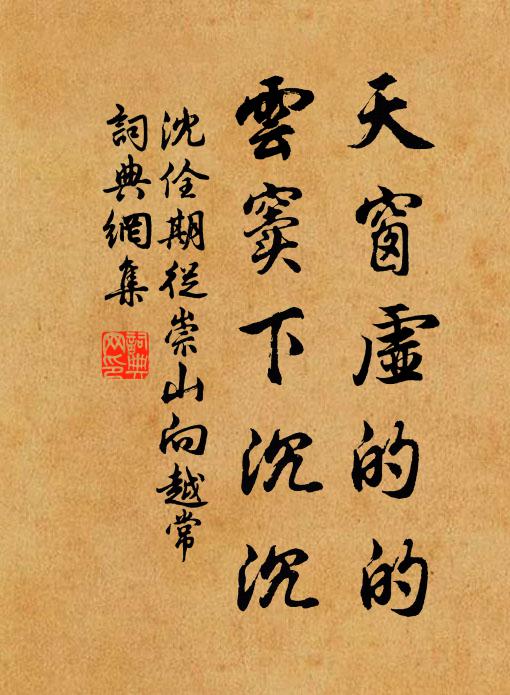 天窗虛的的
雲竇下沉沉
沈佺期從崇山向越常
詞典網集
詞典
网印